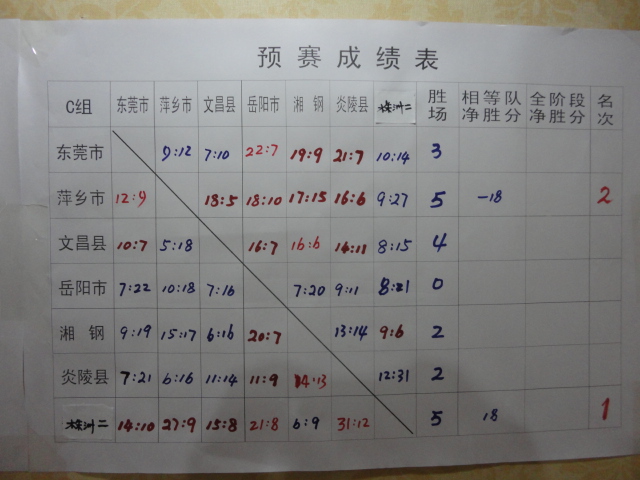 预赛成绩表
C组 东莞市 萍乡市 文昌县 岳阳市 湘钢 炎陵县 株洲二 胜场 相等队净胜分 全阶段净胜分 名次
东莞市 9:12 7:10 22:7 19:9 21:7 10:14 3
萍乡市 12:9 18:5 18:10 17:15 16:6 9:27 5 -18 2
文昌县 10:7 5:18 16:7 16:6 14:11 8:15 4
岳阳市 7:22 10:18 7:16 7:20 9:11 8:21 0
湘钢 9:19 15:17 6:16 20:7 13:14 9:6 2
炎陵县 7:21 6:16 11:14 11:9 14:13 12:31 2
株洲二 14:10 27:9 15:8 21:8 6:9 31:12 5 18 1